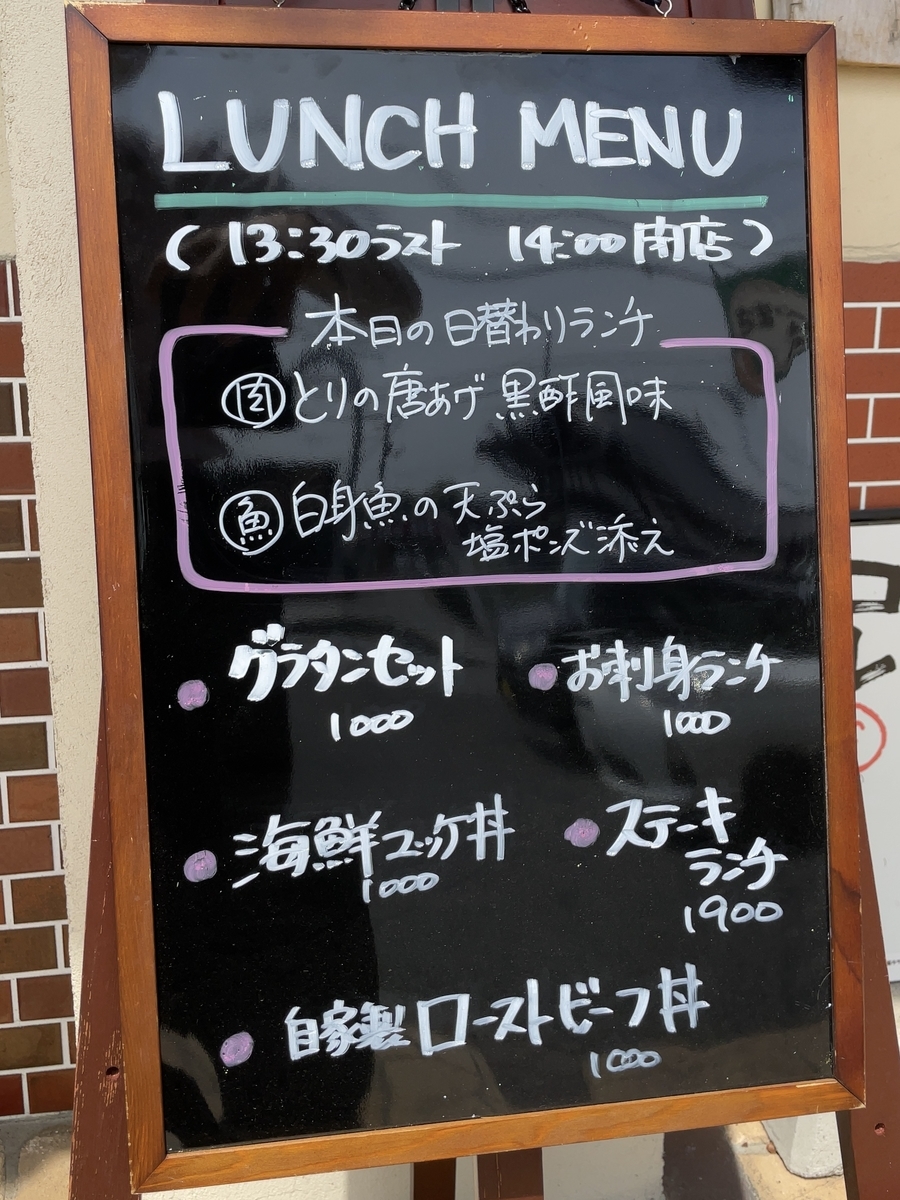 LUNCH MENU
(13:30ラスト 14:00閉店)
本日の日替わりランチ
肉 とりの唐あげ 黒酢風味
魚 白身魚の天ぷら
塩ポンズ添え
グラタンセット
1000
お刺身ランチ
1000
海鮮ユッケ丼
1000
ステーキ
ランチ
1900
自家製ローストビーフ丼
1000